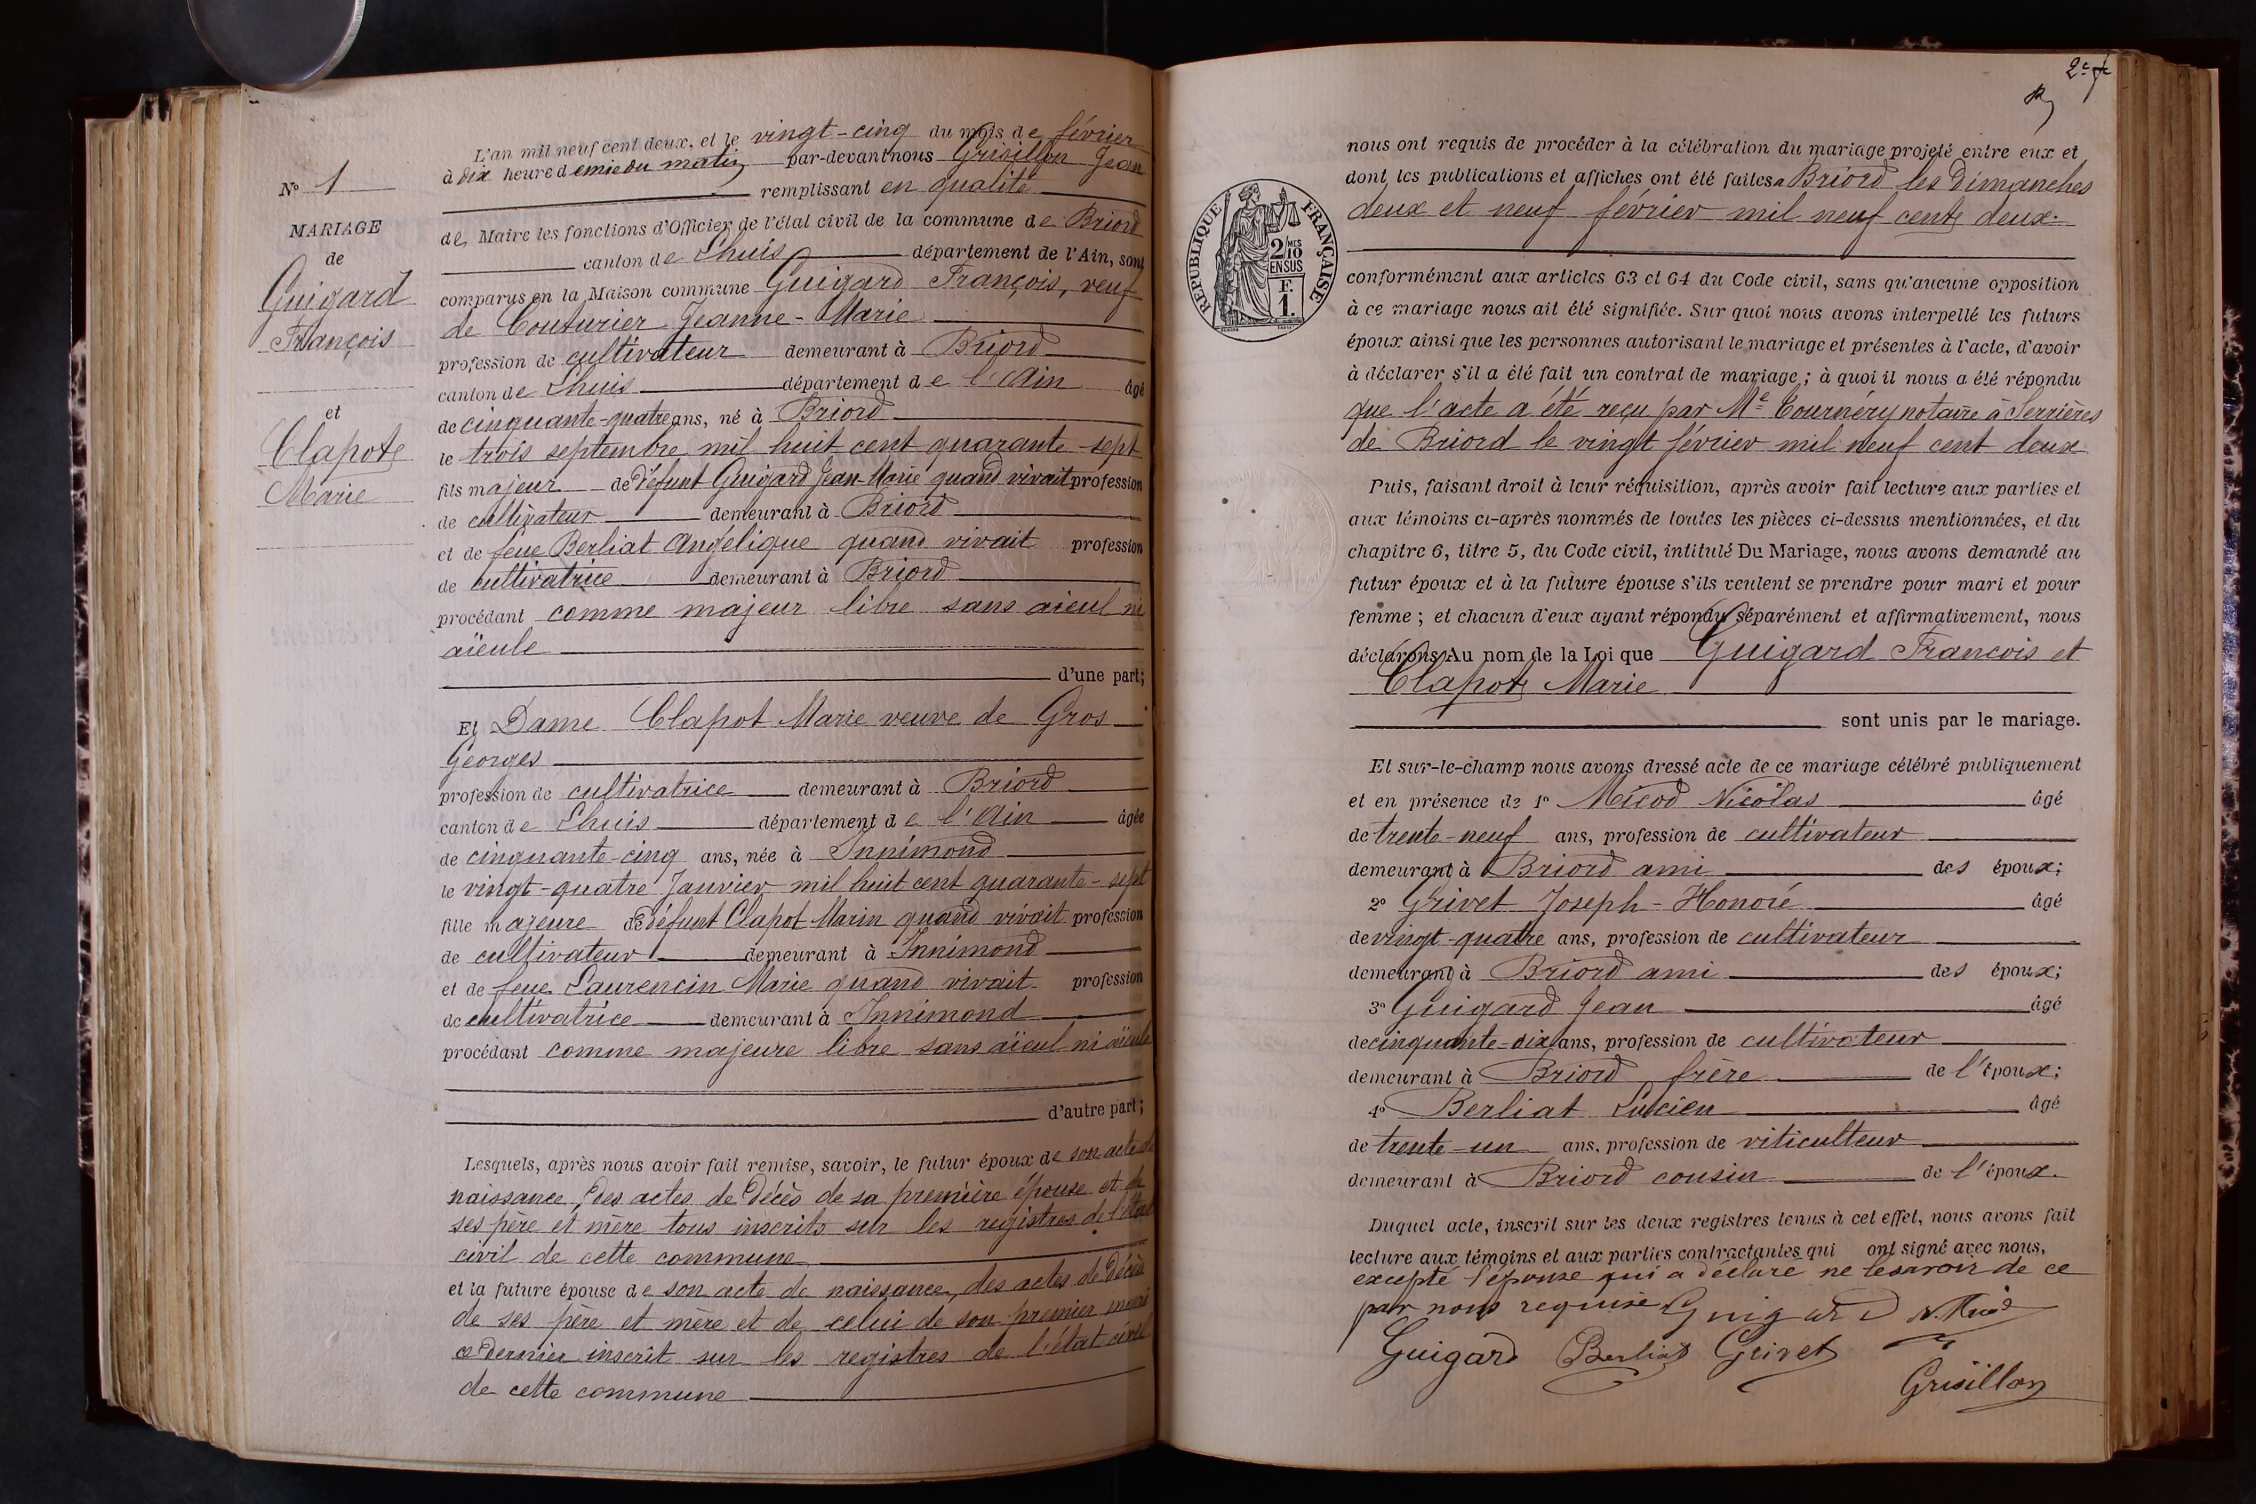 N° 1
MARIAGE
de
Guigard
François
et
Clapot
Marie
L'an mil neuf cent deux, et le vingt-cinq du mois de février
à dix heure demie du matin par-devant nous Grisillon Jean
remplissant en qualité
de Maire les fonctions d'Officier de l'état civil de la commune de Briord
canton de Lhuis département de l'Ain, sont
comparus en la Maison commune Guigard François, veuf
de Couturier Jeanne-Marie
profession de cultivateur demeurant à Briord
canton de Lhuis département de l'Ain âgé
de cinquante-quatre ans, né à Briord
le trois septembre mil huit cent quarante-sept
fils majeur de défunt Guigard Jean-Marie quand vivait profession
de cultivateur demeurant à Briord
et de feue Berliat Angélique quand vivait profession
de cultivatrice demeurant à Briord
procédant comme majeur libre sans aïeul ni
aïeule
d'une part;
Et Dame Clapot Marie veuve de Gros
Georges
profession de cultivatrice demeurant à Briord
canton de Lhuis département de l'Ain âgée
de cinquante-cinq ans, née à Innimond
le vingt-quatre Janvier mil huit cent quarante-sept
fille majeure de défunt Clapot Marin quand vivait profession
de cultivateur demeurant à Innimond
et de feue Laurencin Marie quand vivait profession
de cultivatrice demeurant à Innimond
procédant comme majeure libre sans aïeul ni aïeule
d'autre part;
Lesquels, après nous avoir fait remise, savoir, le futur époux de son acte de
naissance, des actes de décès de sa première épouse et de
ses père et mère tous inscrits sur les registres de l'état
civil de cette commune
et la future épouse de son acte de naissance, des actes de décès
de ses père et mère et de celui de son premier mari
ce dernier inscrit sur les registres de l'état civil
de cette commune
2e
nous ont requis de procéder à la célébration du mariage projeté entre eux et
dont les publications et affiches ont été faites à Briord les Dimanches
deux et neuf février mil neuf cent deux.
RÉPUBLIQUE FRANÇAISE
2/10 MES
EN SUS
F.
1.
conformément aux articles 63 et 64 du Code civil, sans qu'aucune opposition
à ce mariage nous ait été signifiée. Sur quoi nous avons interpellé les futurs
époux ainsi que les personnes autorisant le mariage et présentes à l'acte, d'avoir
à déclarer s'il a été fait un contrat de mariage; à quoi il nous a été répondu
que l'acte a été reçu par Me Tournéry notaire à Serrières
de Briord le vingt février mil neuf cent deux
Puis, faisant droit à leur réquisition, après avoir fait lecture aux parties et
aux témoins ci-après nommés de toutes les pièces ci-dessus mentionnées, et du
chapitre 6, titre 5, du Code civil, intitulé Du Mariage, nous avons demandé au
futur époux et à la future épouse s'ils veulent se prendre pour mari et pour
femme; et chacun d'eux ayant répondu séparément et affirmativement, nous
déclarons Au nom de la Loi que Guigard Francois et
Clapot Marie
sont unis par le mariage.
Et sur-le-champ nous avons dressé acte de ce mariage célébré publiquement
et en présence de 1° Micod Nicolas âgé
de trente-neuf ans, profession de cultivateur
demeurant à Briord ami des époux;
2° Grivet Joseph-Honoré âgé
de vingt-quatre ans, profession de cultivateur
demeurant à Briord ami des époux;
3° Guigard Jean âgé
de cinquante-dix ans, profession de cultivateur
demeurant à Briord frère de l'époux;
4° Berliat Lucien âgé
de trente-un ans, profession de viticulteur
demeurant à Briord cousin de l'époux.
Duquel acte, inscrit sur les deux registres tenus à cet effet, nous avons fait
lecture aux témoins et aux parties contractantes qui ont signé avec nous,
excepté l'épouse qui a déclaré ne le savoir de ce
par nous requise Guigard N. Micod
Guigard Berliat Grivet
Grisillon